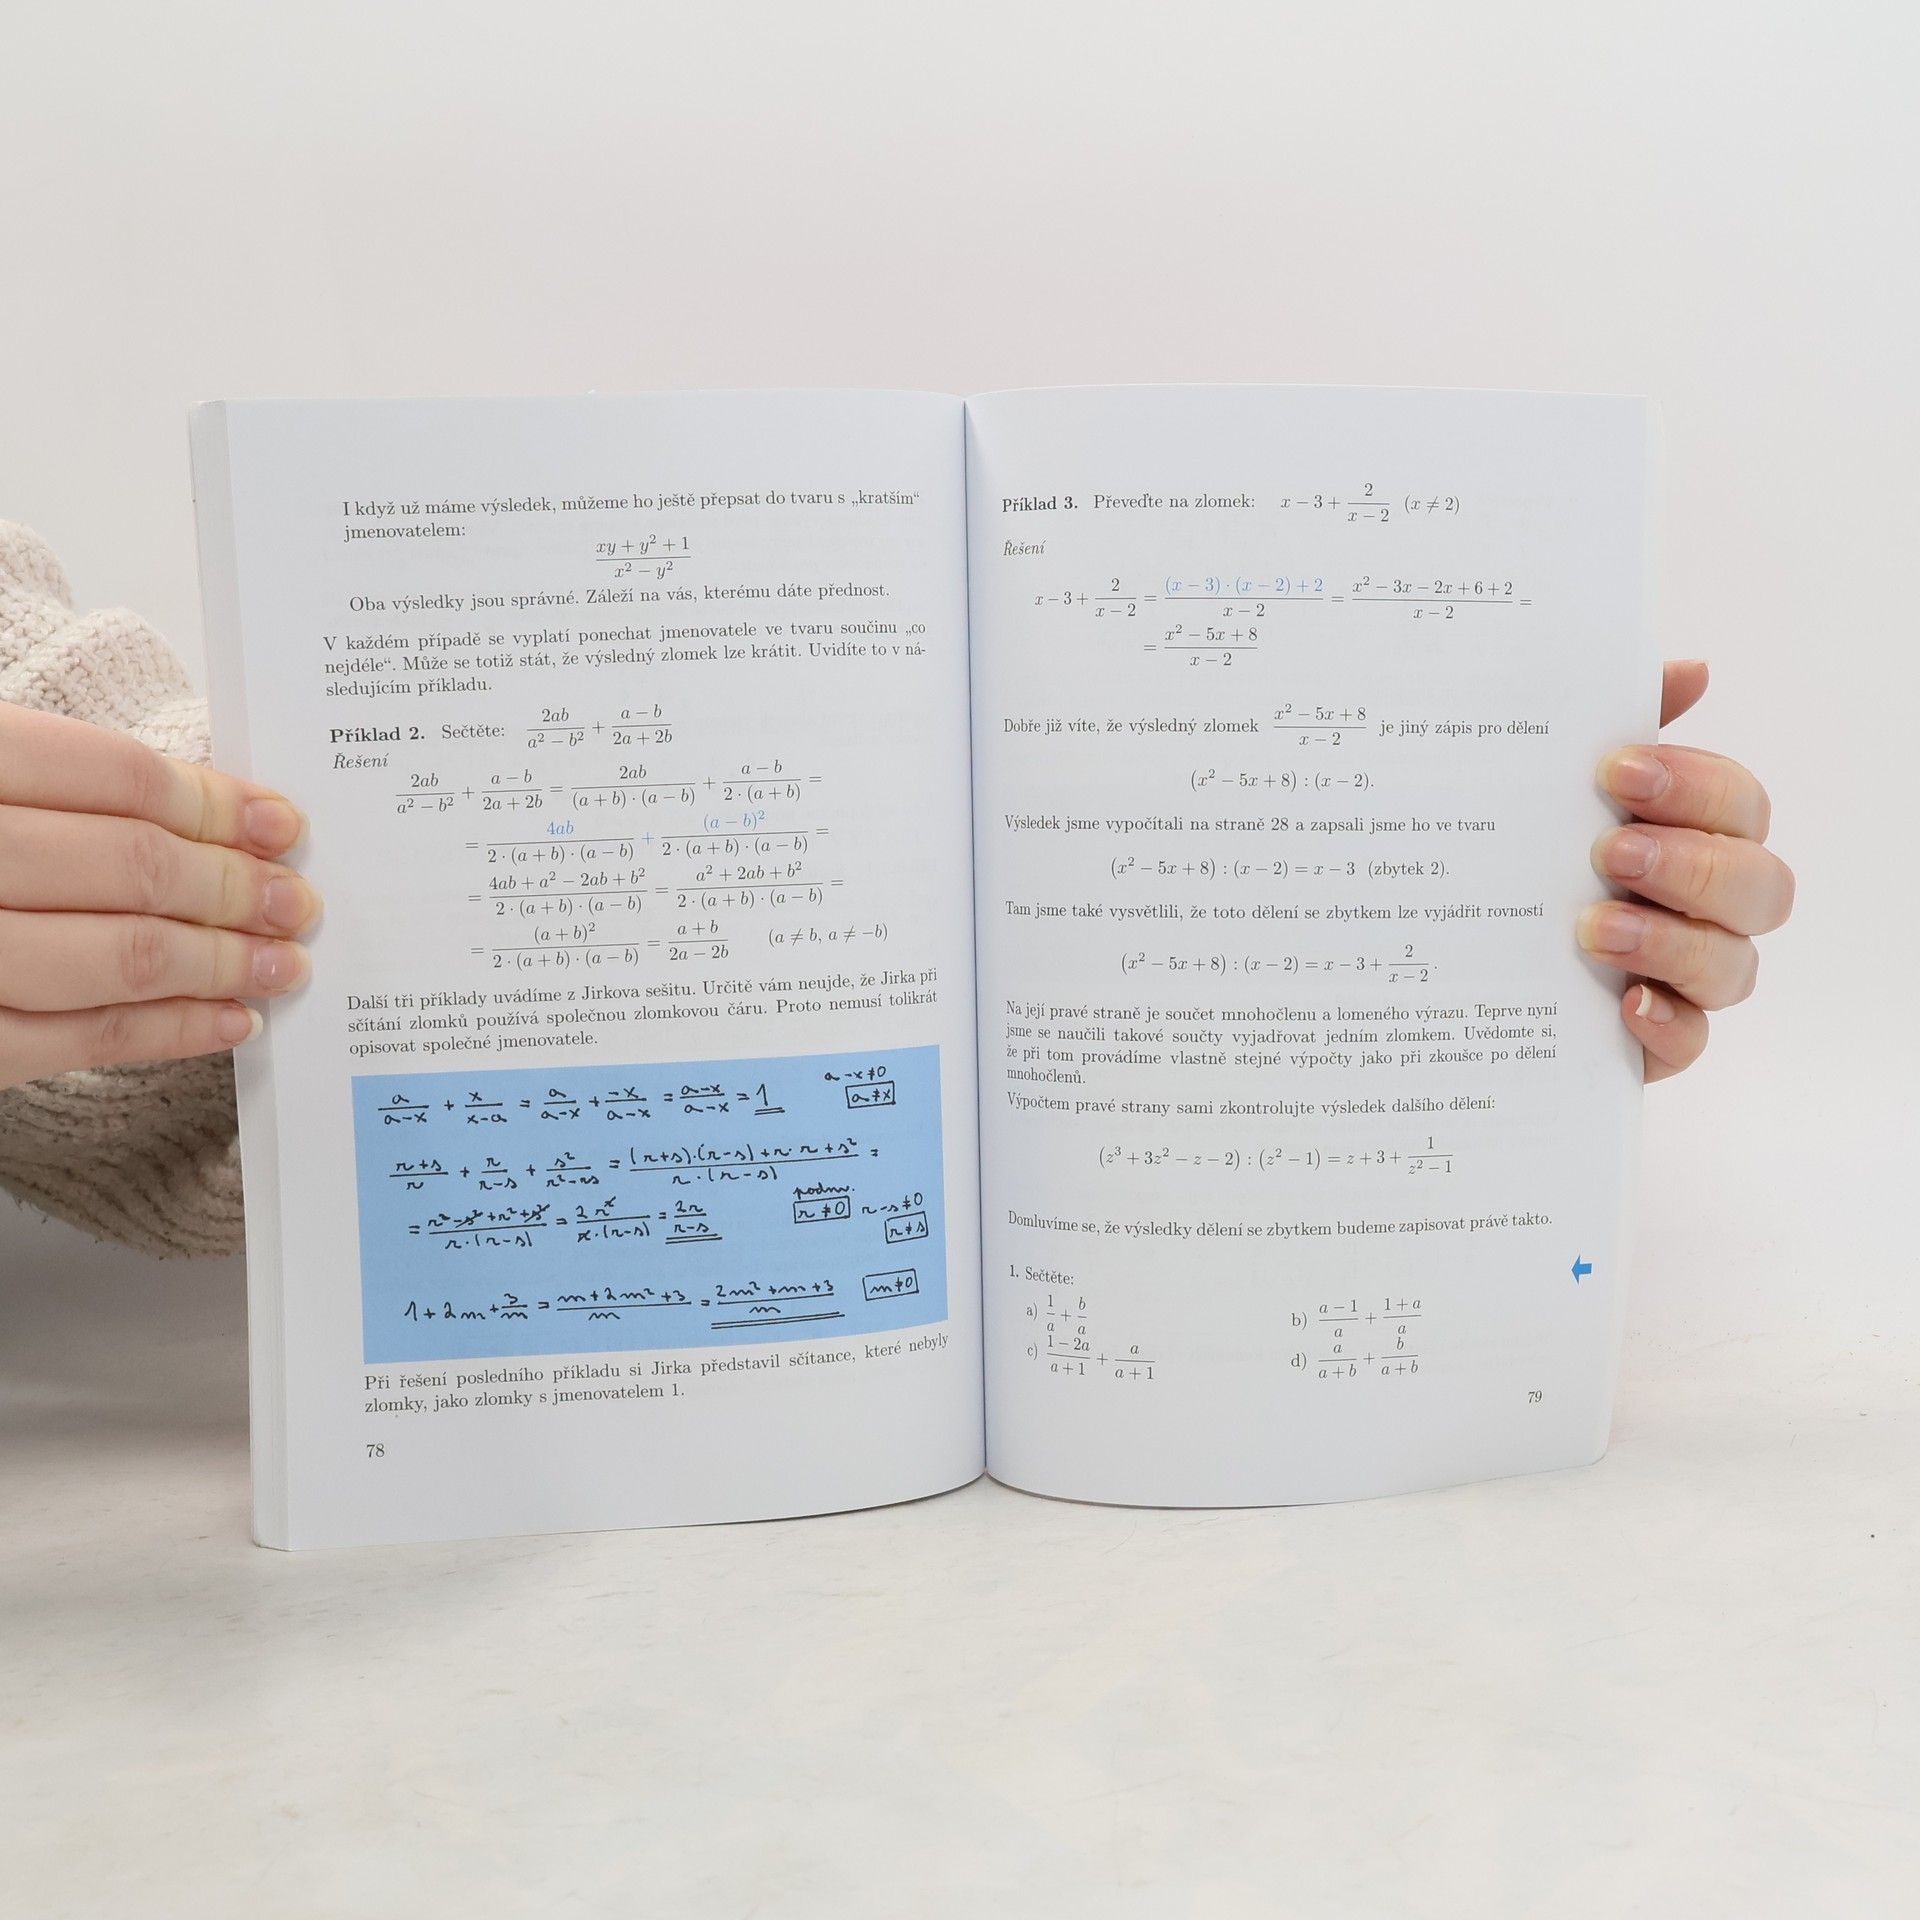 I když už máme výsledek, můžeme ho ještě přepsat do tvaru s „kratším“
jmenovatelem:
(xy + y² + 1)/(x² − y²)
Oba výsledky jsou správné. Záleží na vás, kterému dáte přednost.
V každém případě se vyplatí ponechat jmenovatele ve tvaru součinu „co
nejdéle“. Může se totiž stát, že výsledný zlomek lze krátit. Uvidíte to v ná-
sledujícím příkladu.
Příklad 2. Sečtěte: 2ab/(a² − b²) + (a − b)/(2a + 2b)
Řešení
2ab/(a² − b²) + (a − b)/(2a + 2b) = 2ab/((a + b) · (a − b)) + (a − b)/(2 · (a + b)) =
= 4ab/(2 · (a + b) · (a − b)) + (a − b)²/(2 · (a + b) · (a − b)) =
= (4ab + a² − 2ab + b²)/(2 · (a + b) · (a − b)) = (a² + 2ab + b²)/(2 · (a + b) · (a − b)) =
= (a + b)²/(2 · (a + b) · (a − b)) = (a + b)/(2a − 2b) (a ≠ b, a ≠ −b)
Další tři příklady uvádíme z Jirkova sešitu. Určitě vám neujde, že Jirka při
sčítání zlomků používá společnou zlomkovou čáru. Proto nemusí tolikrát
opisovat společné jmenovatele.
a/(a−x) + x/(x−a) = a/(a−x) + −x/(a−x) = (a−x)/(a−x) = 1 a−x≠0
a≠x
(r+s)/r + r/(r−s) + s²/(r²−rs) = ((r+s)·(r−s)+r·r+s²)/(r·(r−s)) =
= (r²−s²+r²+s²)/(r·(r−s)) = 2r²/(r·(r−s)) = 2r/(r−s) podm. r≠0 r−s≠0
r≠s
1+2m+3/m = (m+2m²+3)/m = (2m²+m+3)/m m≠0
Při řešení posledního příkladu si Jirka představil sčítance, které nebyly
zlomky, jako zlomky s jmenovatelem 1.
78
Příklad 3. Převeďte na zlomek: x − 3 + 2/(x − 2) (x ≠ 2)
Řešení
x − 3 + 2/(x − 2) = ((x − 3) · (x − 2) + 2)/(x − 2) = (x² − 3x − 2x + 6 + 2)/(x − 2) =
= (x² − 5x + 8)/(x − 2)
Dobře již víte, že výsledný zlomek (x² − 5x + 8)/(x − 2) je jiný zápis pro dělení
(x² − 5x + 8) : (x − 2).
Výsledek jsme vypočítali na straně 28 a zapsali jsme ho ve tvaru
(x² − 5x + 8) : (x − 2) = x − 3 (zbytek 2).
Tam jsme také vysvětlili, že toto dělení se zbytkem lze vyjádřit rovností
(x² − 5x + 8) : (x − 2) = x − 3 + 2/(x − 2).
Na její pravé straně je součet mnohočlenu a lomeného výrazu. Teprve nyní
jsme se naučili takové součty vyjadřovat jedním zlomkem. Uvědomte si,
že při tom provádíme vlastně stejné výpočty jako při zkoušce po dělení
mnohočlenů.
Výpočtem pravé strany sami zkontrolujte výsledek dalšího dělení:
(z³ + 3z² − z − 2) : (z² − 1) = z + 3 + 1/(z² − 1)
Domluvíme se, že výsledky dělení se zbytkem budeme zapisovat právě takto.
1. Sečtěte:
a) 1/a + b/a b) (a − 1)/a + (1 + a)/a
c) (1 − 2a)/(a + 1) + a/(a + 1) d) a/(a + b) + b/(a + b)
79